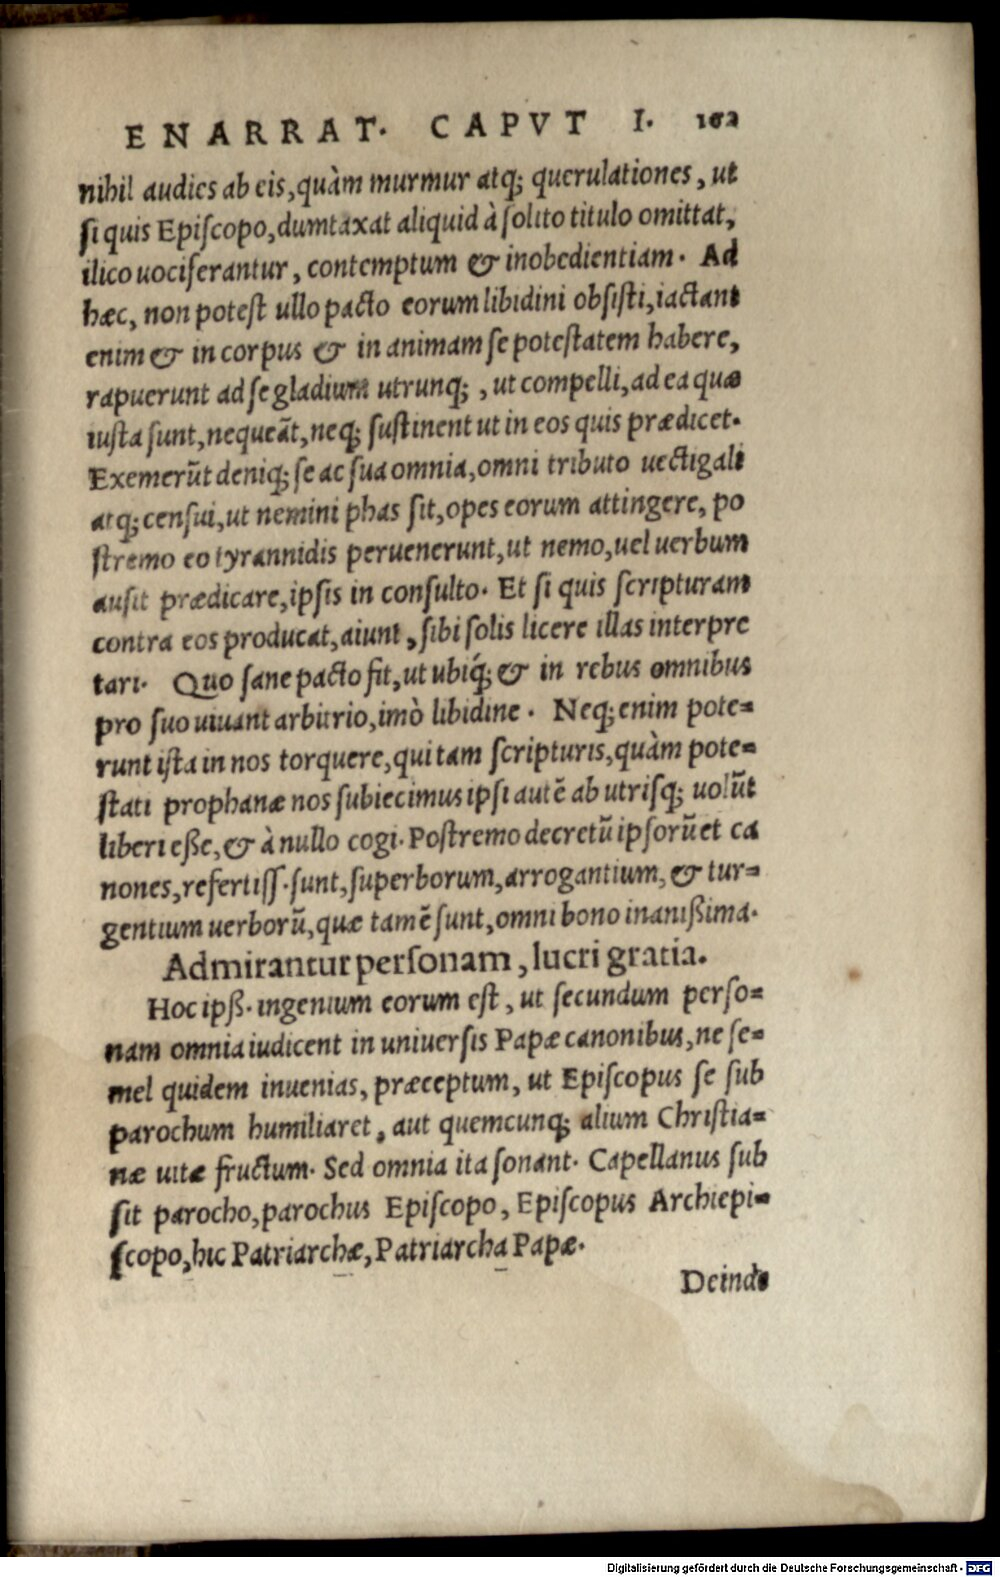 ENARRAT. CAPVT I. 162
nihil audies ab eis, quàm murmur atq; querulationes, ut
si quis Episcopo, dumtaxat aliquid à solito titulo omittat,
ilico uociferantur, contemptum & inobedientiam. Ad
hæc, non potest ullo pacto eorum libidini obsisti, iactant
enim & in corpus & in animam se potestatem habere,
rapuerunt ad se gladium utrunq;, ut compelli, ad ea quæ
iusta sunt, nequeāt, neq; sustinent ut in eos quis prædicet.
Exemerūt deniq; se ac sua omnia, omni tributo uectigali
atq; censui, ut nemini phas sit, opes eorum attingere, po
stremo eo tyrannidis peruenerunt, ut nemo, uel uerbum
ausit prædicare, ipsis in consulto. Et si quis scripturam
contra eos producat, aiunt, sibi solis licere illas interpre
tari. Quo sane pacto fit, ut ubiq́; & in rebus omnibus
pro suo uiuant arbitrio, imò libidine. Neq; enim pote=
runt ista in nos torquere, qui tam scripturis, quàm pote=
stati prophanæ nos subiecimus ipsi autē ab utrisq; uolūt
liberi eße, & à nullo cogi. Postremo decretū ipsorū et ca
nones, refertiss. sunt, superborum, arrogantium, & tur=
gentium uerborū, quæ tamē sunt, omni bono inanißima.
Admirantur personam, lucri gratia.
Hoc ipß. ingenium eorum est, ut secundum perso=
nam omnia iudicent in uniuersis Papæ canonibus, ne se=
mel quidem inuenias, præceptum, ut Episcopus se sub
parochum humiliaret, aut quemcunq; alium Christia=
næ uitæ fructum. Sed omnia ita sonant. Capellanus sub
sit parocho, parochus Episcopo, Episcopus Archiepi=
scopo, hic Patriarchæ, Patriarcha Papæ.
Deinde
Digitalisierung gefördert durch die Deutsche Forschungsgemeinschaft - DFG